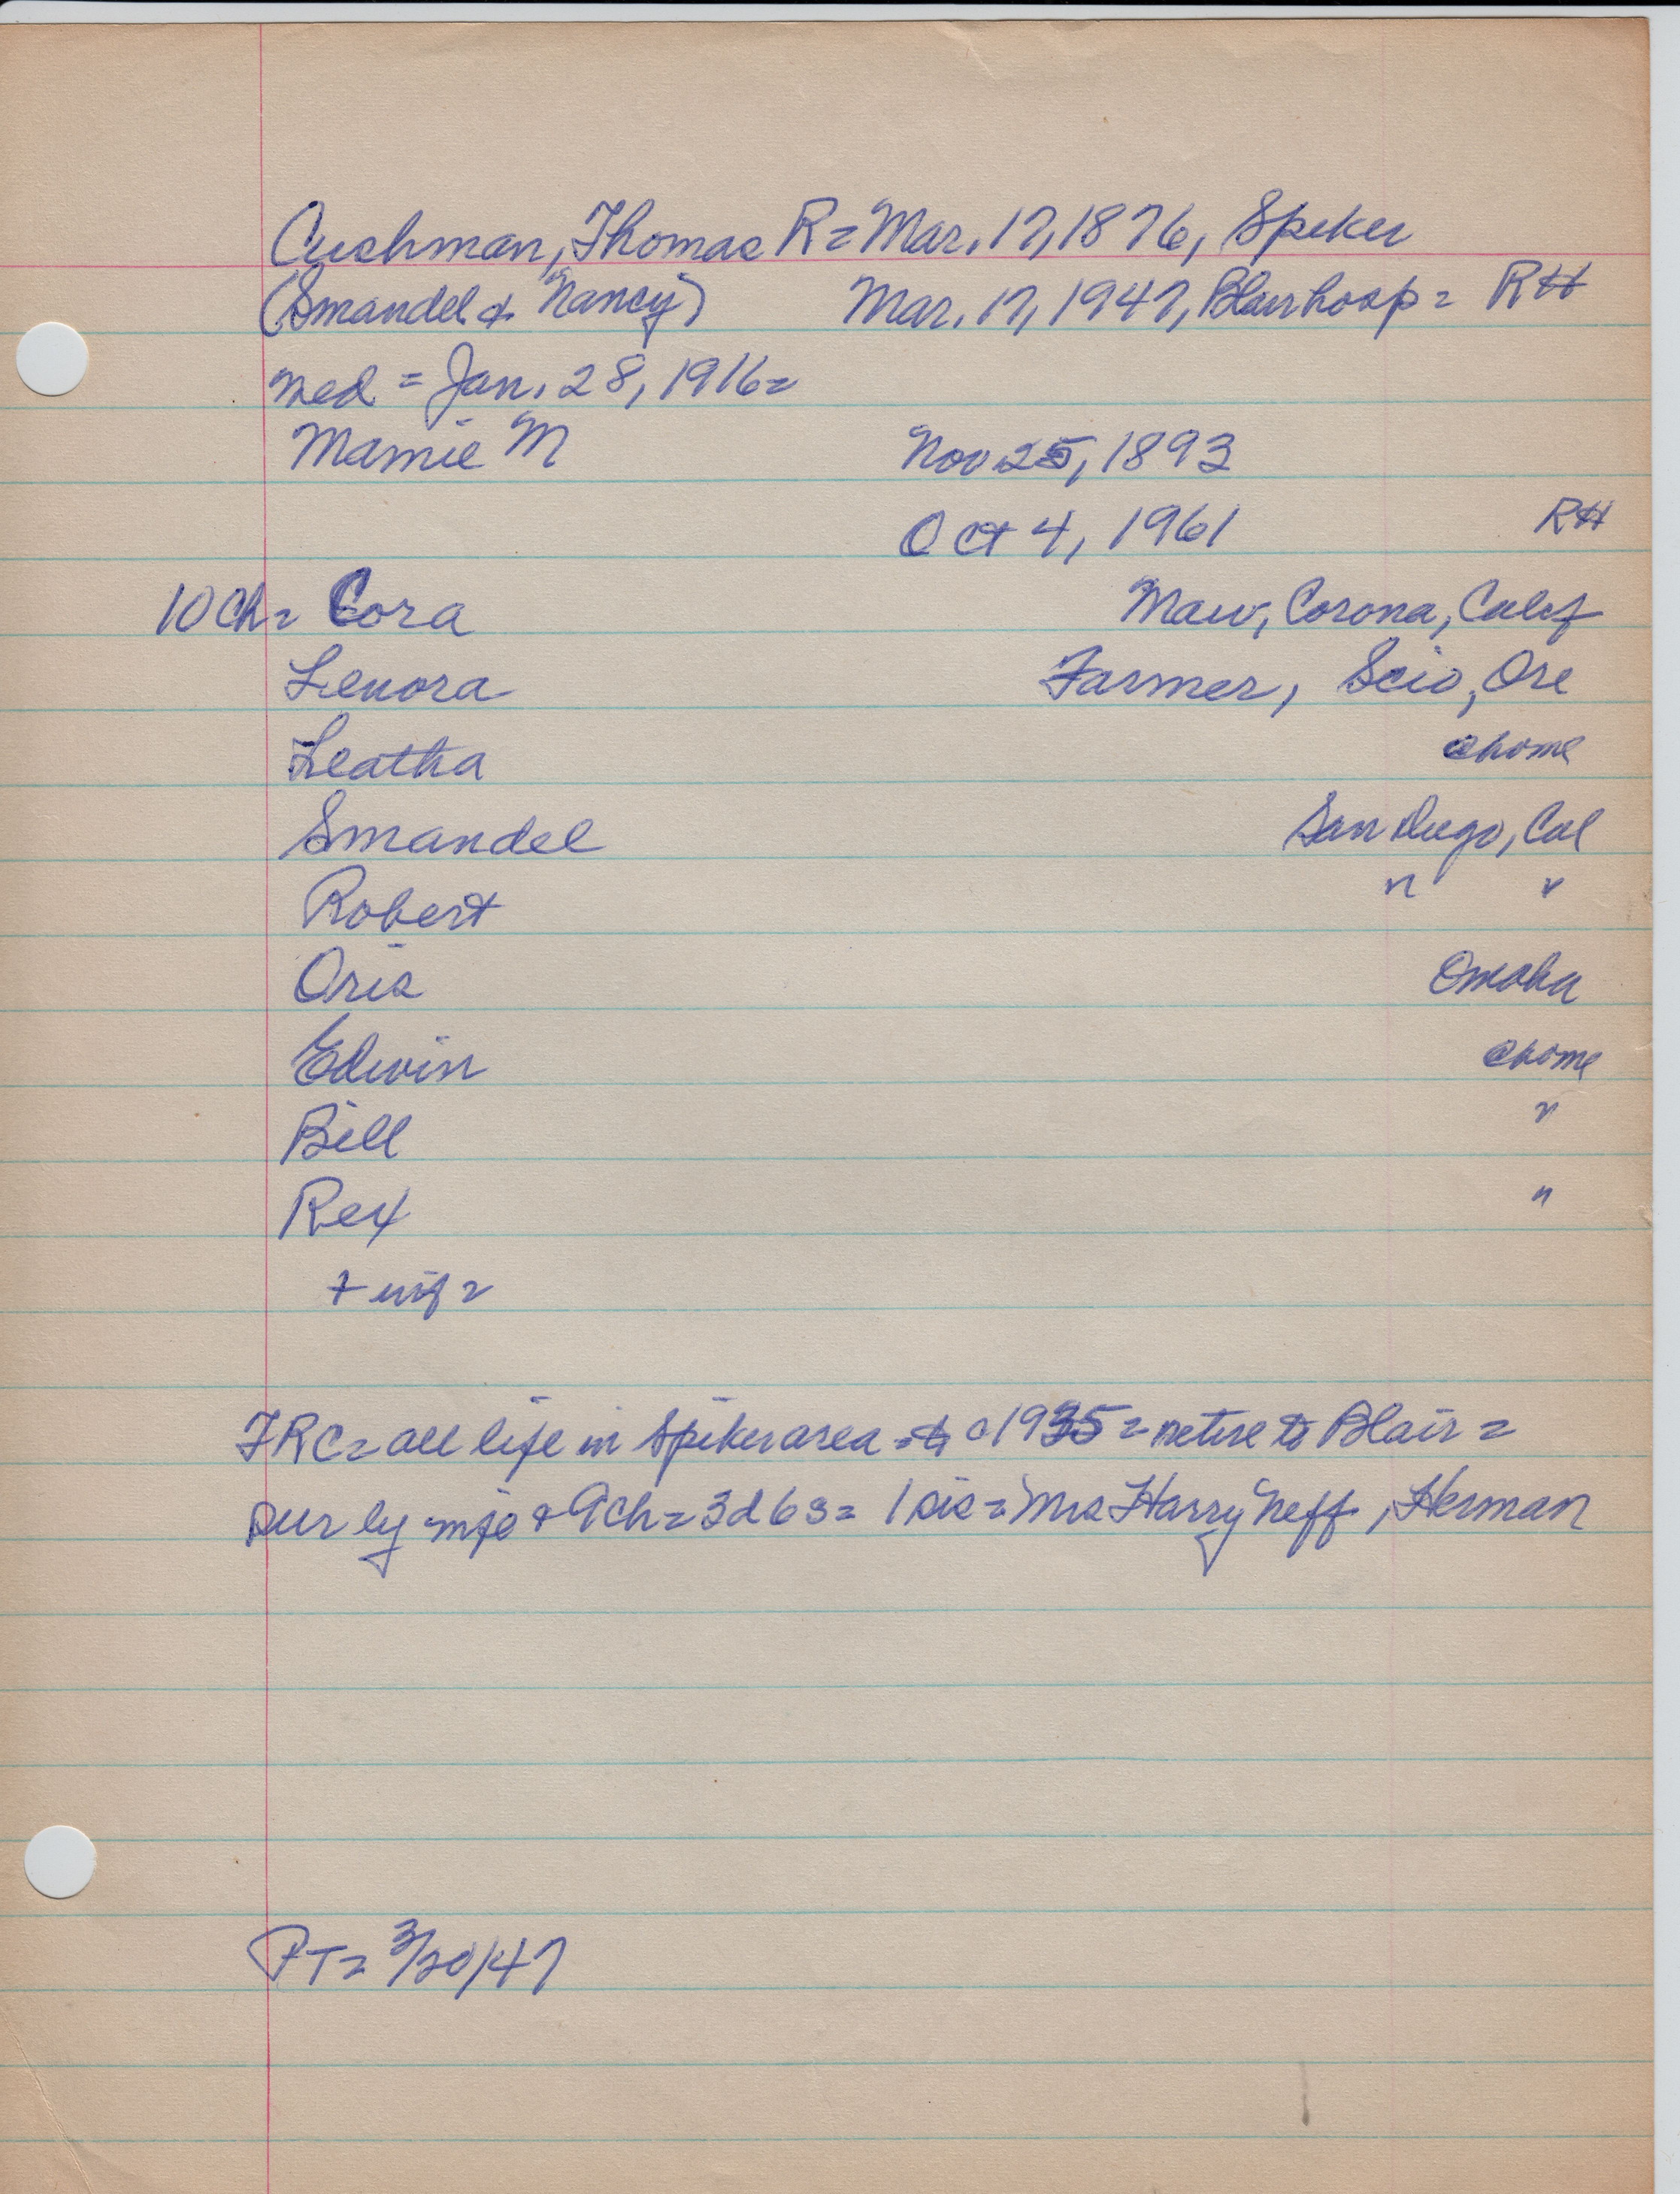 Cushman, Thomas R = Mar. 17, 1876, Spiker
(Smandel & Nancy) Mar. 17, 1947, Blair hosp = RH
med = Jan. 28, 1916 =
Mamie M Nov 25, 1893
Oct 4, 1961 RH
10 Ch = Cora Maw, Corona, Calif
Lenora Farmer, Scio, Ore
Leatha @home
Smandel San Diego, Cal
Robert " "
Oris Omaha
Edwin @home
Bill "
Rex "
+ inf =
TRC = all life in Spiker area = to c1935 = retire to Blair =
sur by wife & 9ch = 3d 6s = 1 sis = Mrs Harry Neff, Herman
PT = 3/20/47